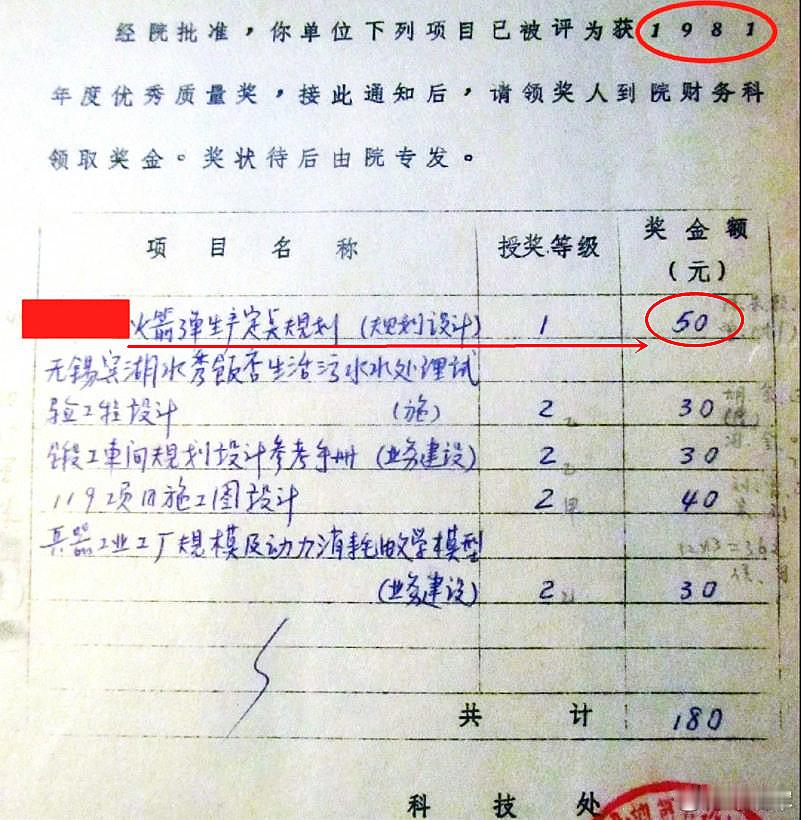 经院批准，你单位下列项目已被评为获1981
年度优秀质量奖，接此通知后，请领奖人到院财务科
领取奖金。奖状待后由院专发。
项目名称 授奖等级 奖金额（元）
火箭弹生产定点规划（规划设计） 1 50
无锡滨湖水秀饭店生活污水水处理试
验工程设计 （施） 2乙 30
锻工车间规划设计参考手册（业务建设） 2乙 30
119项目施工图设计 2甲 40
兵器工业工厂规模及动力消耗数学模型
（业务建设） 2乙 30
共计 180
科技处